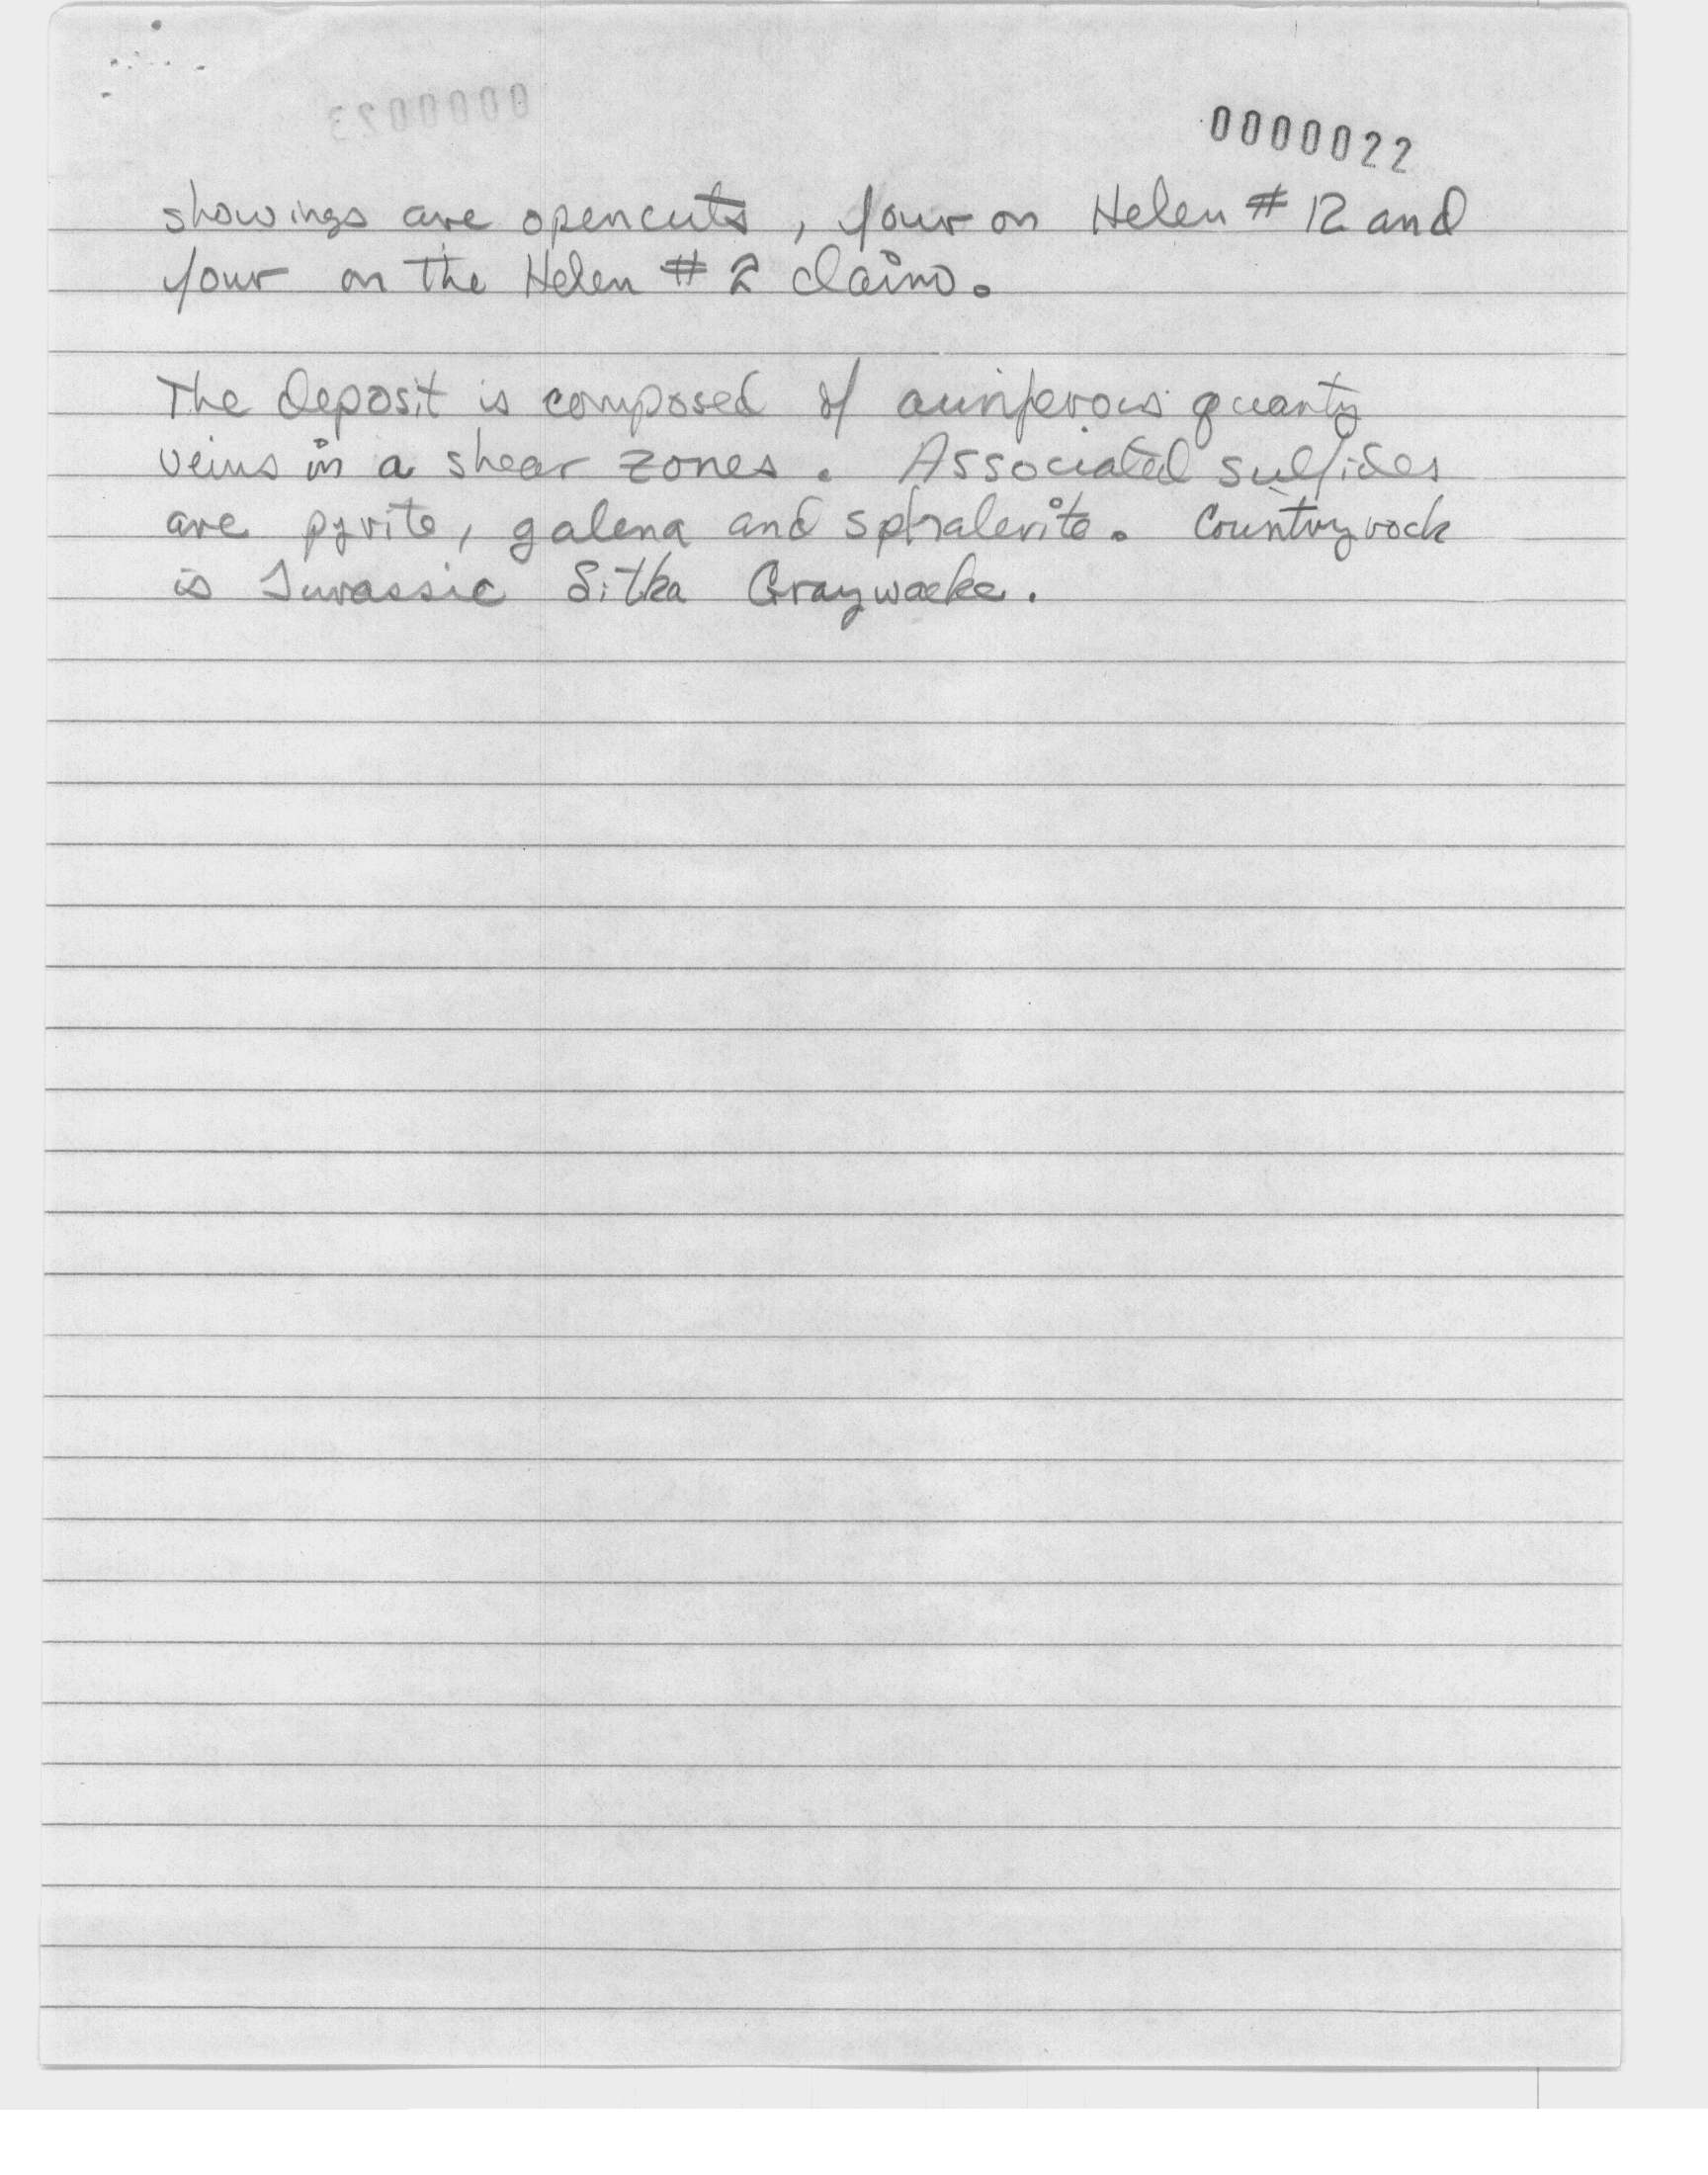 0000022
showings are opencuts, four on Helen # 12 and
four on the Helen # 2 claims.
The deposit is composed of auriferous quartz
veins in a shear zones. Associated sulfides
are pyrite, galena and sphalerite. Country rock
is Jurassic Sitka Graywacke.